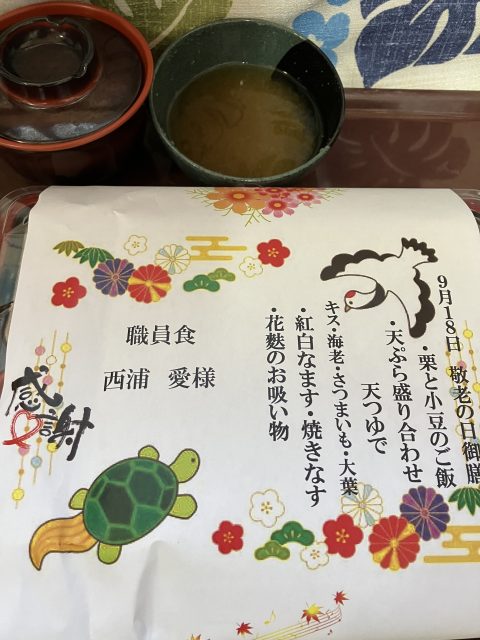 9月18日 敬老の日御膳
・栗と小豆のご飯
・天ぷら盛り合わせ
天つゆで
キス・海老・さつまいも・大葉
・紅白なます・焼きなす
・花麩のお吸い物
職員食
西浦 愛様
感謝